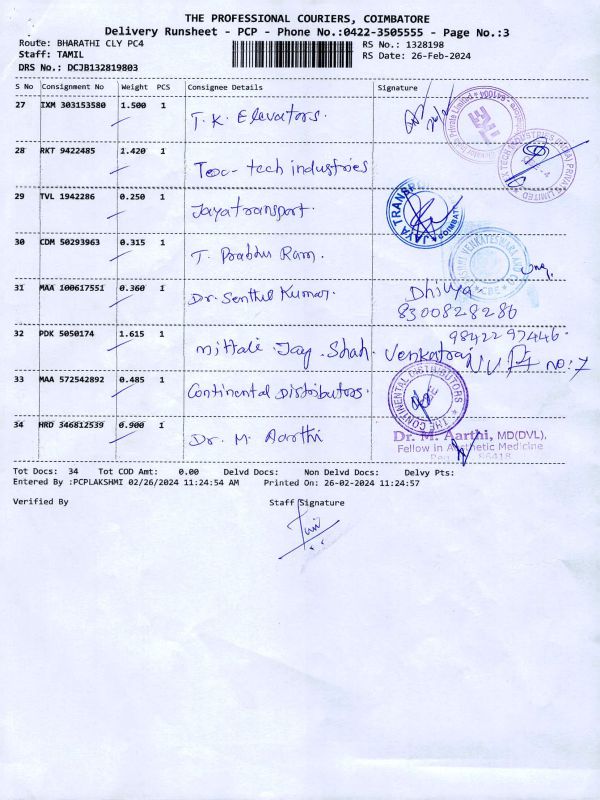 THE PROFESSIONAL COURIERS, COIMBATORE
Delivery Runsheet - PCP - Phone No.:0422-3505555 - Page No.:3
Route: BHARATHI CLY PC4 RS No.: 1328198
Staff: TAMIL RS Date: 26-Feb-2024
DRS No.: DCJB132819803
S No Consignment No Weight PCS Consignee Details Signature
27 IXM 303153580 1.500 1 T. K. Elevators.
28 RKT 9422485 1.420 1 tech industries
29 TVL 1942286 0.250 1 Jayatransport.
JAYA TRANSPORT
30 CDM 50293963 0.315 1 T. Prabhu Ram.
31 MAA 100617551 0.360 1 Dr. Senthil Kumar. Dhivya
8300828286
32 PDK 5050174 1.615 1 mittali Jay. Shah. Venkatraj
98422 97446.
no:7
33 MAA 572542892 0.485 1 Continental Distributors.
THE CONTINENTAL DISTRIBUTORS
34 HRD 346812539 0.900 1 Dr. M. Aarthi
Dr. M. Aarthi, MD(DVL),
Fellow in Aesthetic Medicine
Tot Docs: 34 Tot COD Amt: 0.00 Delvd Docs: Non Delvd Docs: Delvy Pts:
Entered By :PCPLAKSHMI 02/26/2024 11:24:54 AM Printed On: 26-02-2024 11:24:57
Verified By Staff Signature